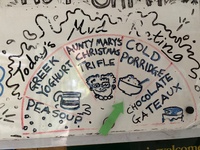 Today's
GREEK
YOGHURT
PEA SOUP
AUNTY MARY'S
CHRISTMAS
TRIFLE
COLD
PORRIDGE
CHOCOLATE
GATEAUX